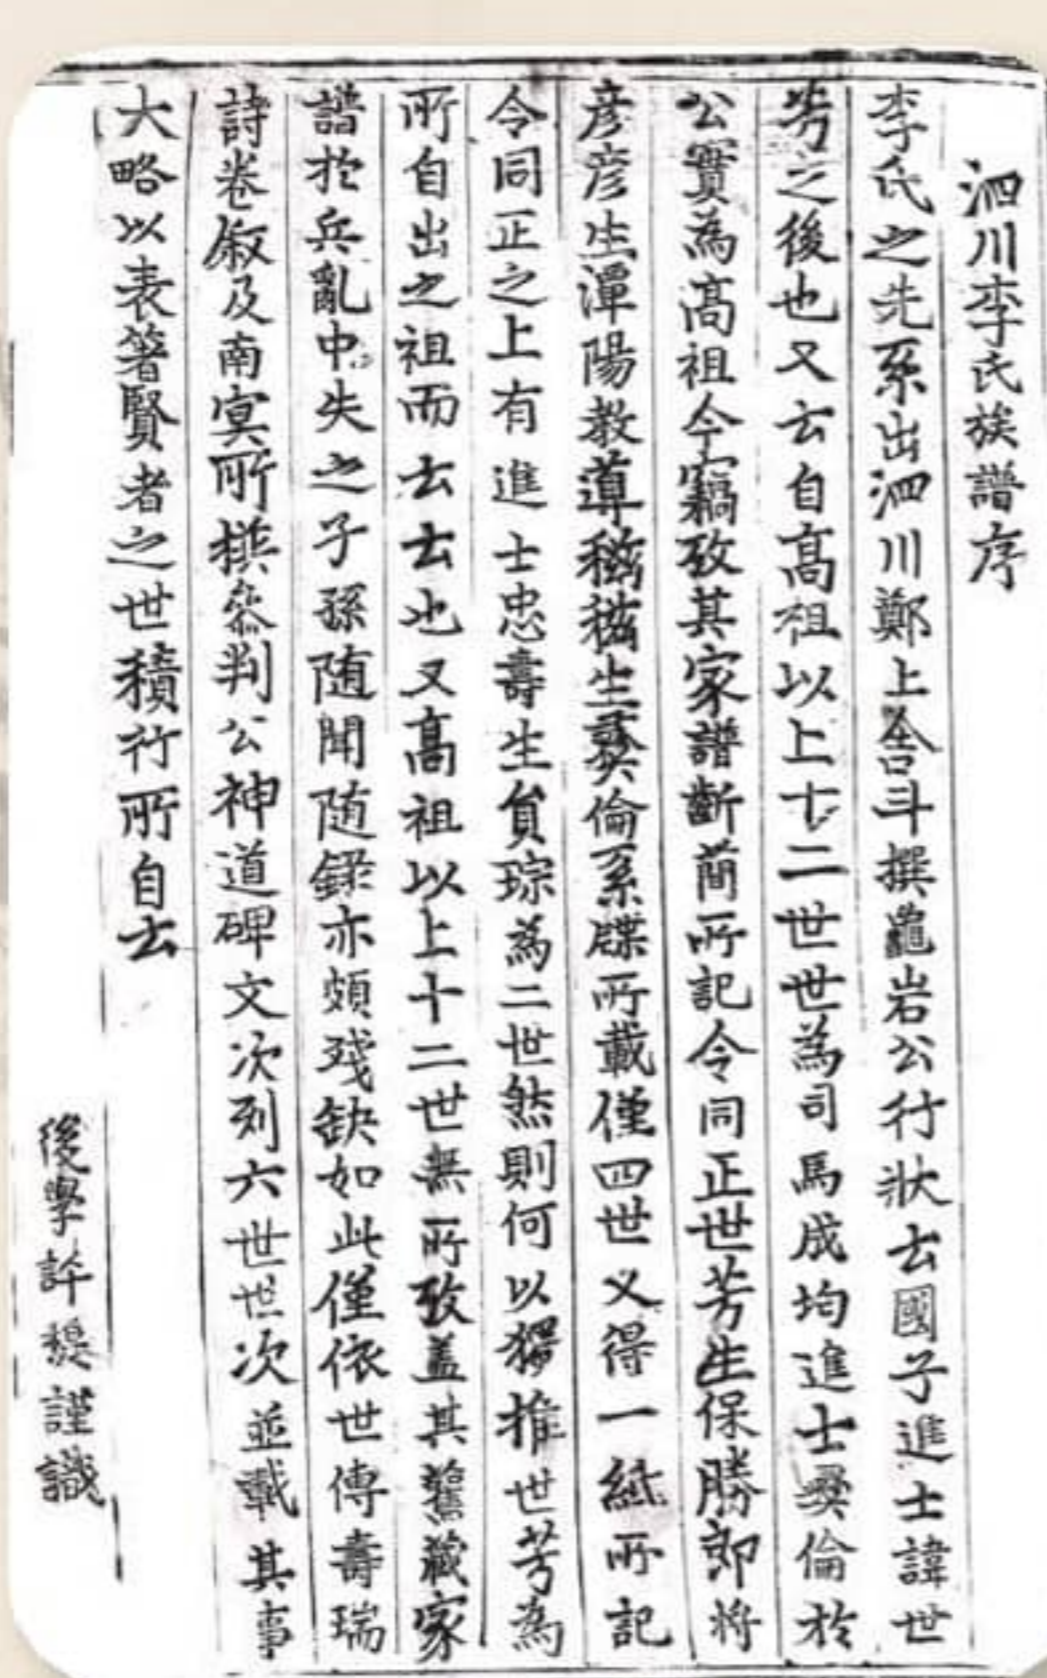 泗川李氏族譜序
李氏之先系出泗川鄭上舍斗撰龜岩公行狀云國子進士諱世
芳之後也又云自高祖以上十二世世為司馬成均進士奫倫於
公實為高祖今竊攷其家譜斷簡所記令同正世芳生保勝郎將
彦彦生潭陽教導稵稵生奫倫系牒所載僅四世又得一紙所記
令同正之上有進士忠壽生貟琮為二世然則何以獨推世芳為
所自出之祖而去云也又高祖以上十二世無所攷盖其舊藏家
譜於兵亂中失之子孫随聞随錄亦頗殘缺如此僅依世傳壽瑞
詩卷叙及南㝠所撰叅判公神道碑文次列六世世次並載其事
大略以表著賢者之世積行所自云
後學許穆謹識